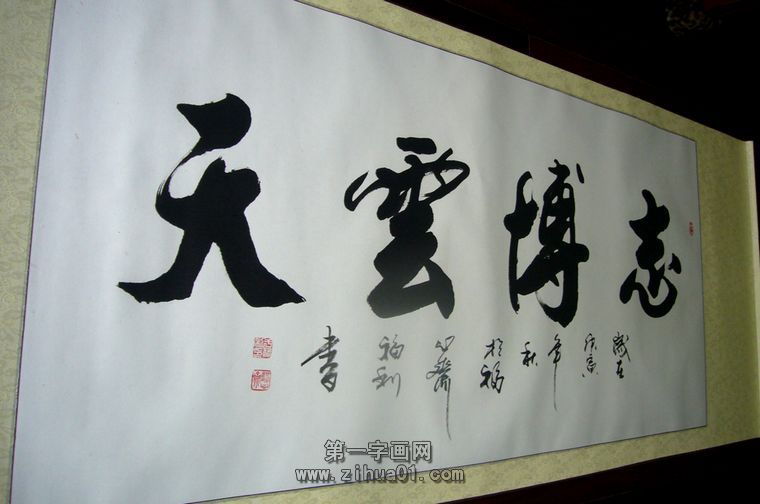 志博雲天
歲在
庚寅
年
秋
於福
心齋
福利
書
第一字画网
www.zihua01.com